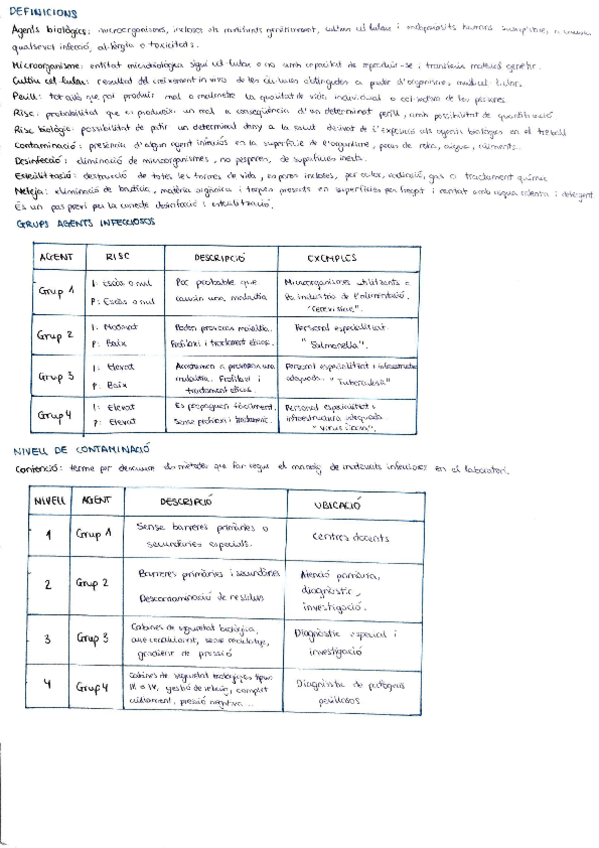 DEFINICIONS
Agents biològics: microorganismes, inclosos els modificats genèticament, cultius cel·lulars i endoparàsits humans susceptibles a causar
qualsevol infecció, al·lèrgia o toxicitat.
Microorganisme: entitat microbiològica sigui cel·lular o no amb capacitat de reproduir-se i transferir material genètic.
Cultiu cel·lular: resultat del creixement in vitro de les cèl·lules obtingudes a partir d'organisme
Perill: tot allò que pot produir mal o qualitat de vida individual o col·lectiva de les persones
Risc: probabilitat que es produeixi un mal a conseqüència d'un determinat perill, amb possibilitat de quantificació
Risc biològic: possibilitat de patir un determinat dany a la salut derivat de l'exposició als agents biològics en el treball
Contaminació: presència d'algun agent infecciós en la superfície de l'organisme, peces de roba, aigua, aliments.
Desinfecció: eliminació de microorganismes, no espores, de superfícies inerts.
Esterilització: destrucció de totes les formes de vida, espores incloses, per calor, radiació, gas o tractament químic
Neteja: eliminació de brutícia, matèria orgànica i taques presents en superfícies per fregat i rentat amb aigua calenta i detergent.
És un pas previ per la correcte desinfecció i esterilització.
GRUPS AGENTS INFECCIOSOS
AGENT RISC DESCRIPCIÓ EXEMPLES
Grup 1 I: Escàs o nul P: Escàs o nul Poc probable que causin una malaltia Microorganismes utilitzats a la industria de l'alimentació.
Grup 2 I: Moderat P: Baix Poden provocar malaltia. Profilaxi i tractament eficaç. Personal especialitzat. "Salmonella".
Grup 3 I: Elevat P: Baix malaltia. Profilaxi i tractament eficaç. Personal especialitzat i infraestructura adequada. "Tuberculosi"
Grup 4 I: Elevat P: Elevat Es propaguen fàcilment. Sense profilaxi i tractament. Personal especialitzat i infraestructura adequada
NIVELL DE CONTAMINACIÓ
Contenció: terme per descriure els mètodes que fan segur el maneig de materials infecciosos en el laboratori.
NIVELL AGENT DESCRIPCIÓ UBICACIÓ
1 Grup 1 Sense barreres primàries o secundàries especials. Centres docents
2 Grup 2 Barreres primàries i secundàries Descontaminació de residus Atenció primària, diagnòstic, investigació.
3 Grup 3 Cabines de seguretat biològica, aire condicionat, sense reciclatge, gradient de pressió Diagnòstic especial i investigació
4 Grup 4 Cabines de seguretat biològiques tipus III o IV, aïllament, pressió negativa... Diagnòstic de patògens perillosos